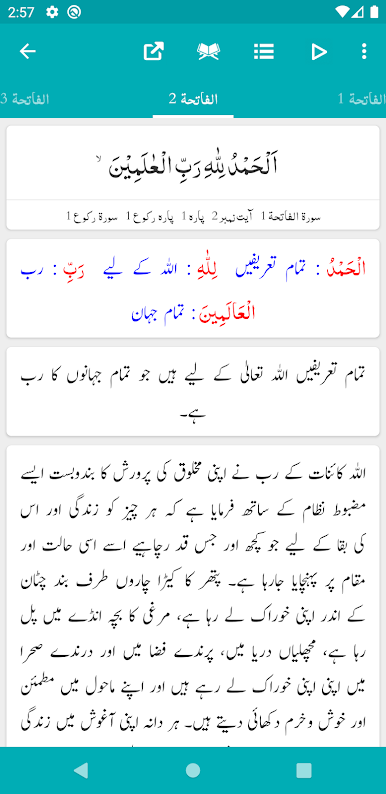 2:57
الفاتحة 1
الفاتحة 2
الفاتحة 3
اَلْحَمْدُ لِلّٰهِ رَبِّ الْعٰلَمِیْنَ ۙ
سورۃ الفاتحۃ 1 آیت نمبر 2 پارہ 1 پارہ رکوع 1 سورۃ رکوع 1
الْحَمْدُ : تمام تعریفیں لِلّٰهِ : اللہ کے لیے رَبِّ : رب
الْعَالَمِيْنَ : تمام جہان
تمام تعریفیں اللہ تعالیٰ کے لیے ہیں جو تمام جہانوں کا رب
ہے۔
اللہ کائنات کے رب نے اپنی مخلوق کی پرورش کا بندوبست ایسے
مضبوط نظام کے ساتھ فرمایا ہے کہ ہر چیز کو زندگی اور اس
کی بقا کے لیے جو کچھ اور جس قدر چاہیے اسے اسی حالت اور
مقام پر پہنچایا جارہا ہے۔ پتھر کا کیڑا چاروں طرف بند چٹان
کے اندر اپنی خوراک لے رہا ہے، مرغی کا بچہ انڈے میں پل
رہا ہے، مچھلیاں دریا میں، پرندے فضا میں اور درندے صحرا
میں اپنی اپنی خوراک لے رہے ہیں اور اپنے ماحول میں مطمئن
اور خوش وخرم دکھائی دیتے ہیں۔ ہر دانہ اپنی آغوش میں زندگی